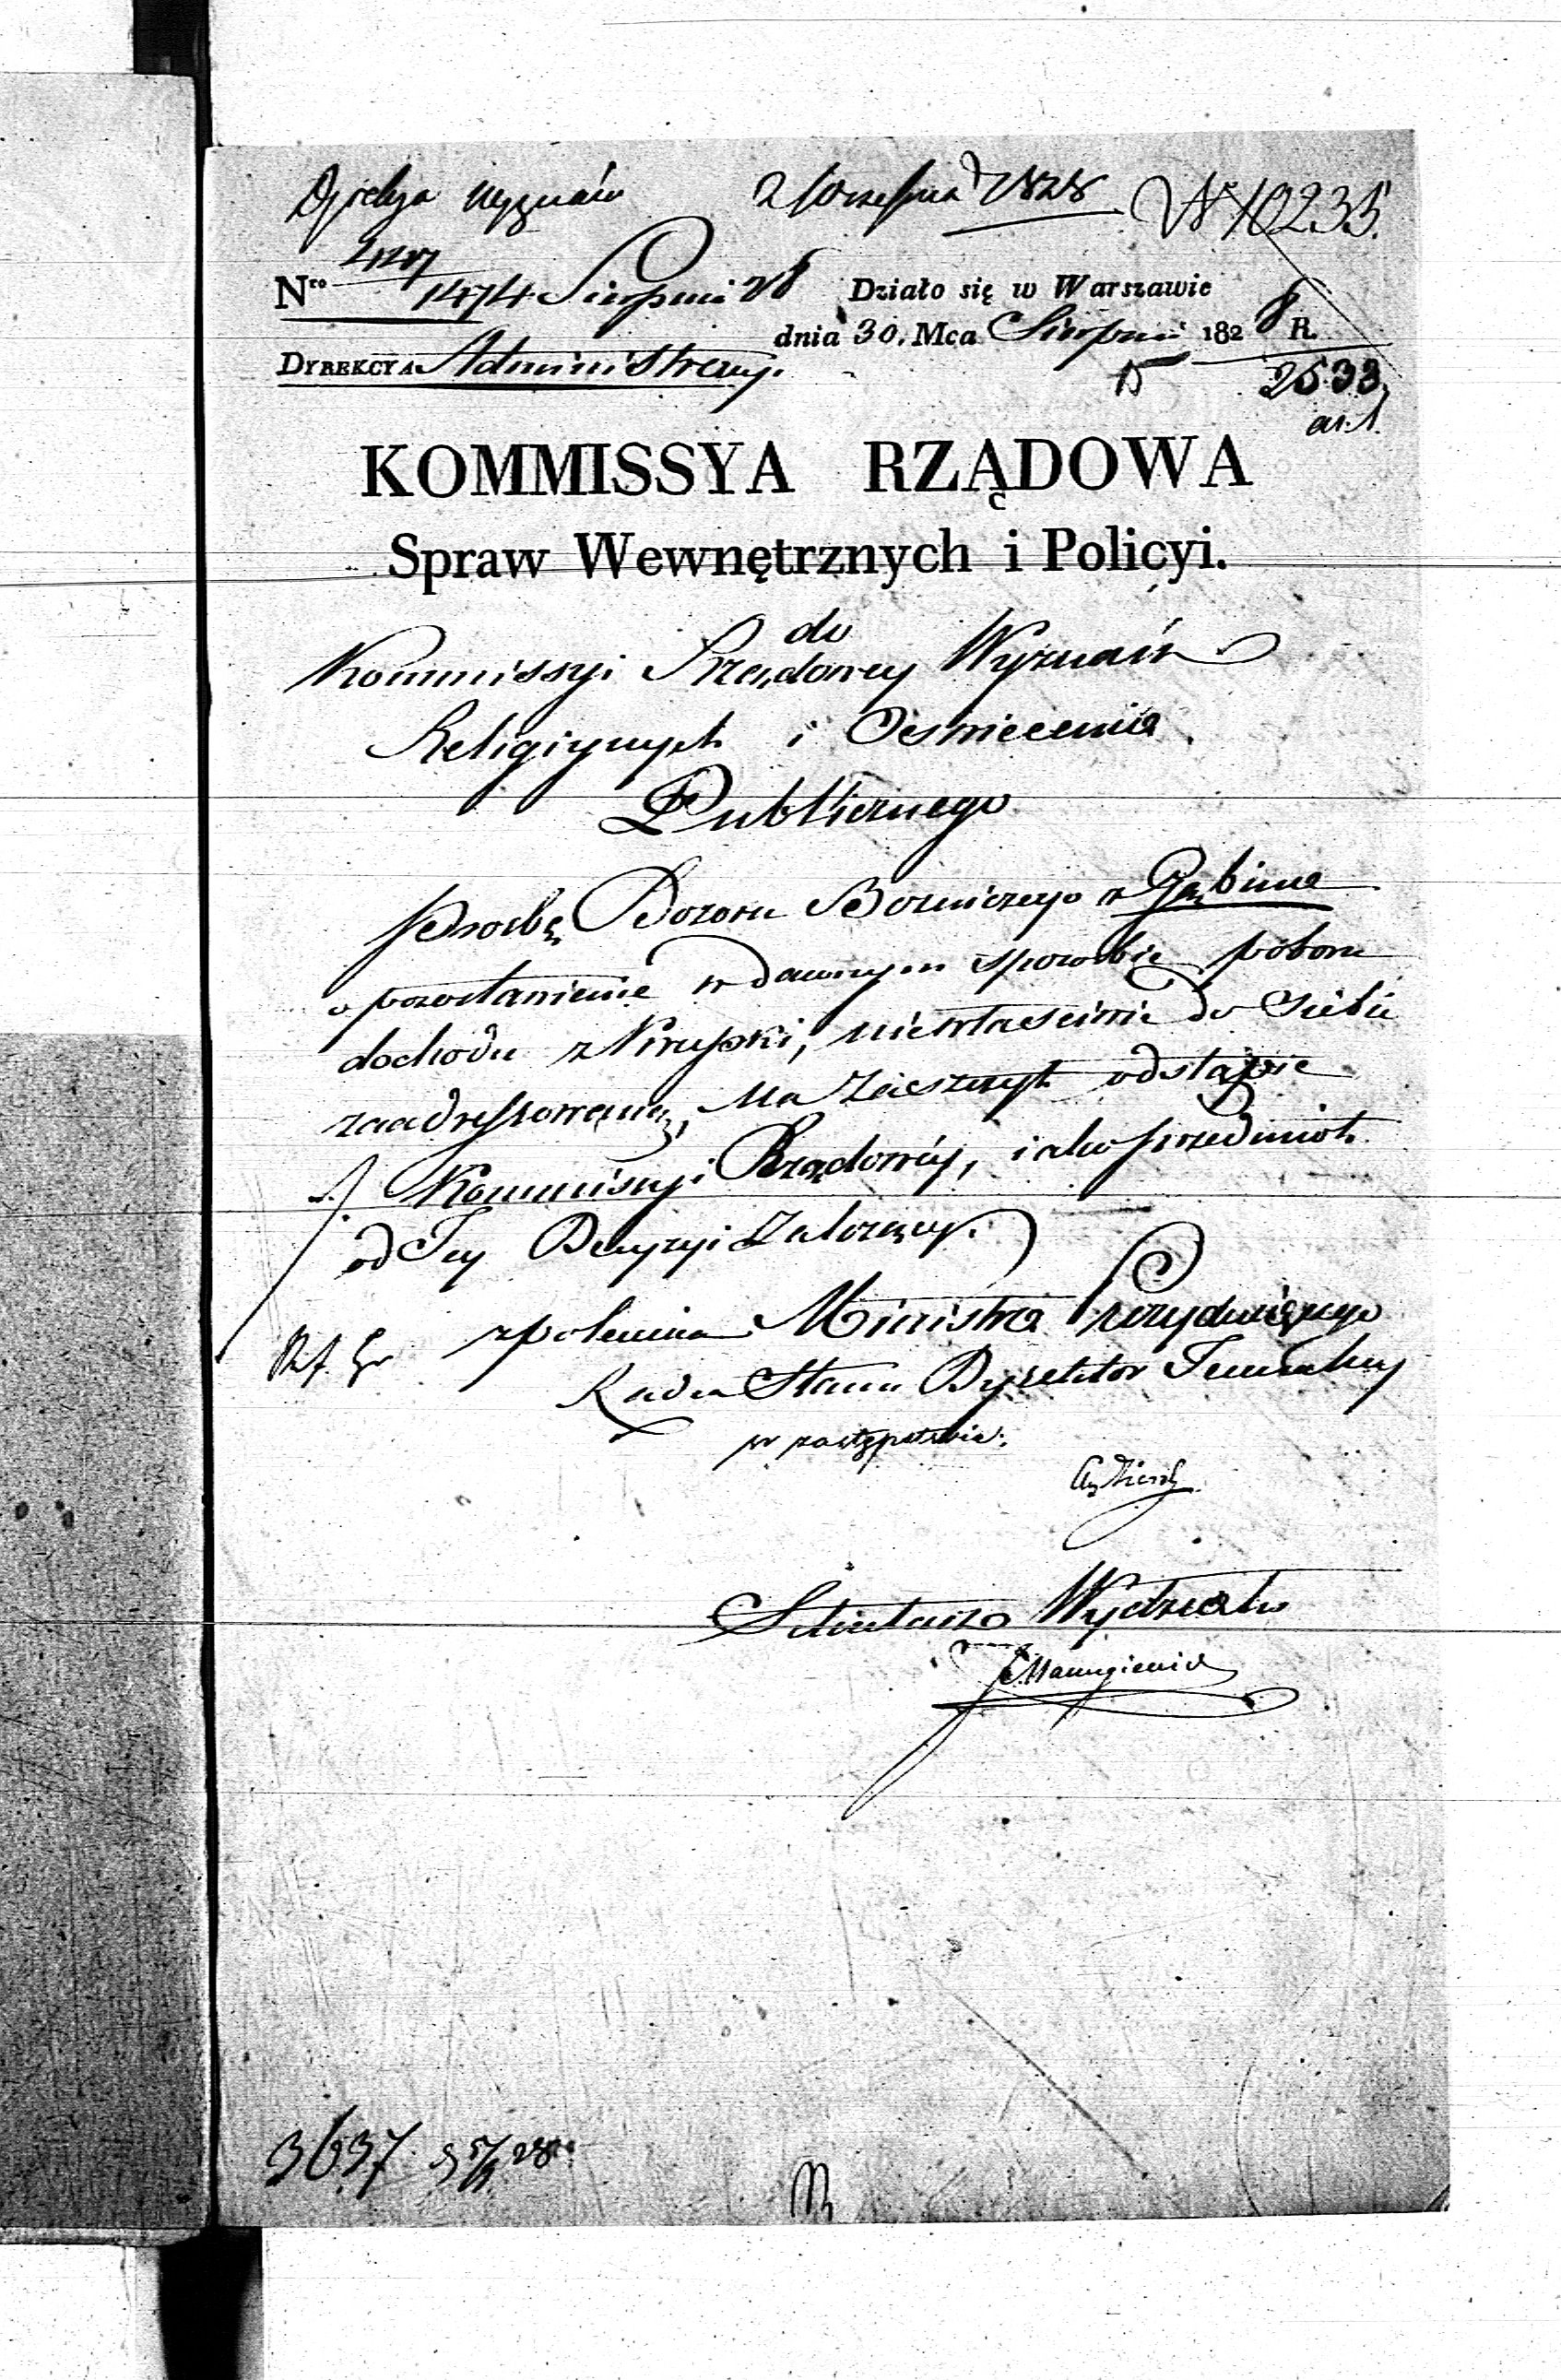 Dyrekcya Wyznań 2 Września 1828 N 10235.
Nro 1474 Sierpnia 28 Działo się w Warszawie
dnia 30. Mca Sierpnia 1828 R.
DYREKCYA Administracyj.
2533
KOMMISSYA RZĄDOWA
Spraw Wewnętrznych i Policyi.
do
Kommissyi Rządowey Wyznań
Religiynych i Oswiecenia
Publicznego
Prosbę Dozoru Bozniczego z Gąbina
o pozostawienie w dawnym sposobie poboru
dochodu z Krupki, niewłasciwie do siebie
zaadressowaną, Ma Zaszczyt odstąpić
Kommissyi Rządowéy, iako przedmiot
od Jey Decyzyi Zalezący.
z polecenia Ministra Prezyduiącego
Radca Stanu Dyrektor Jeneralny
w zastępstwie.
Sekretarz Wydziału
3637